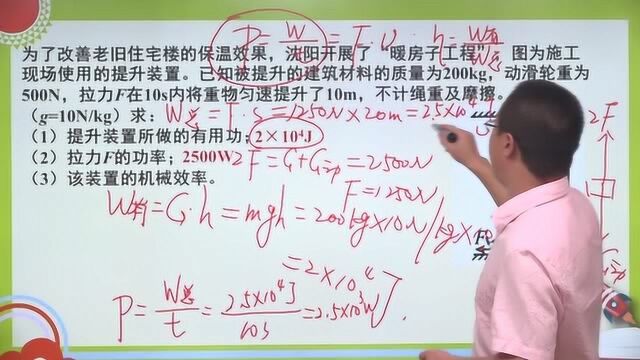 P = W/t = F·v · η = W有/W总
为了改善老旧住宅楼的保温效果，沈阳开展了“暖房子工程”， 图为施工
现场使用的提升装置。已知被提升的建筑材料的质量为200kg，动滑轮重为
500N，拉力F在10s内将重物匀速提升了10m，不计绳重及摩擦。
（g=10N/kg）求：
W总 = F·s = 1250N×20m = 2.5×10
（1）提升装置所做的有用功；2×10⁴J
（2）拉力F的功率；2500W
2F = G+G动 = 2500N
（3）该装置的机械效率。
F=1250N
W有 = G·h = mgh = 200kg×10N/kg×
= 2×10⁴J
P = W总/t = 2.5×10⁴J/10s = 2.5×10³W
2F
F